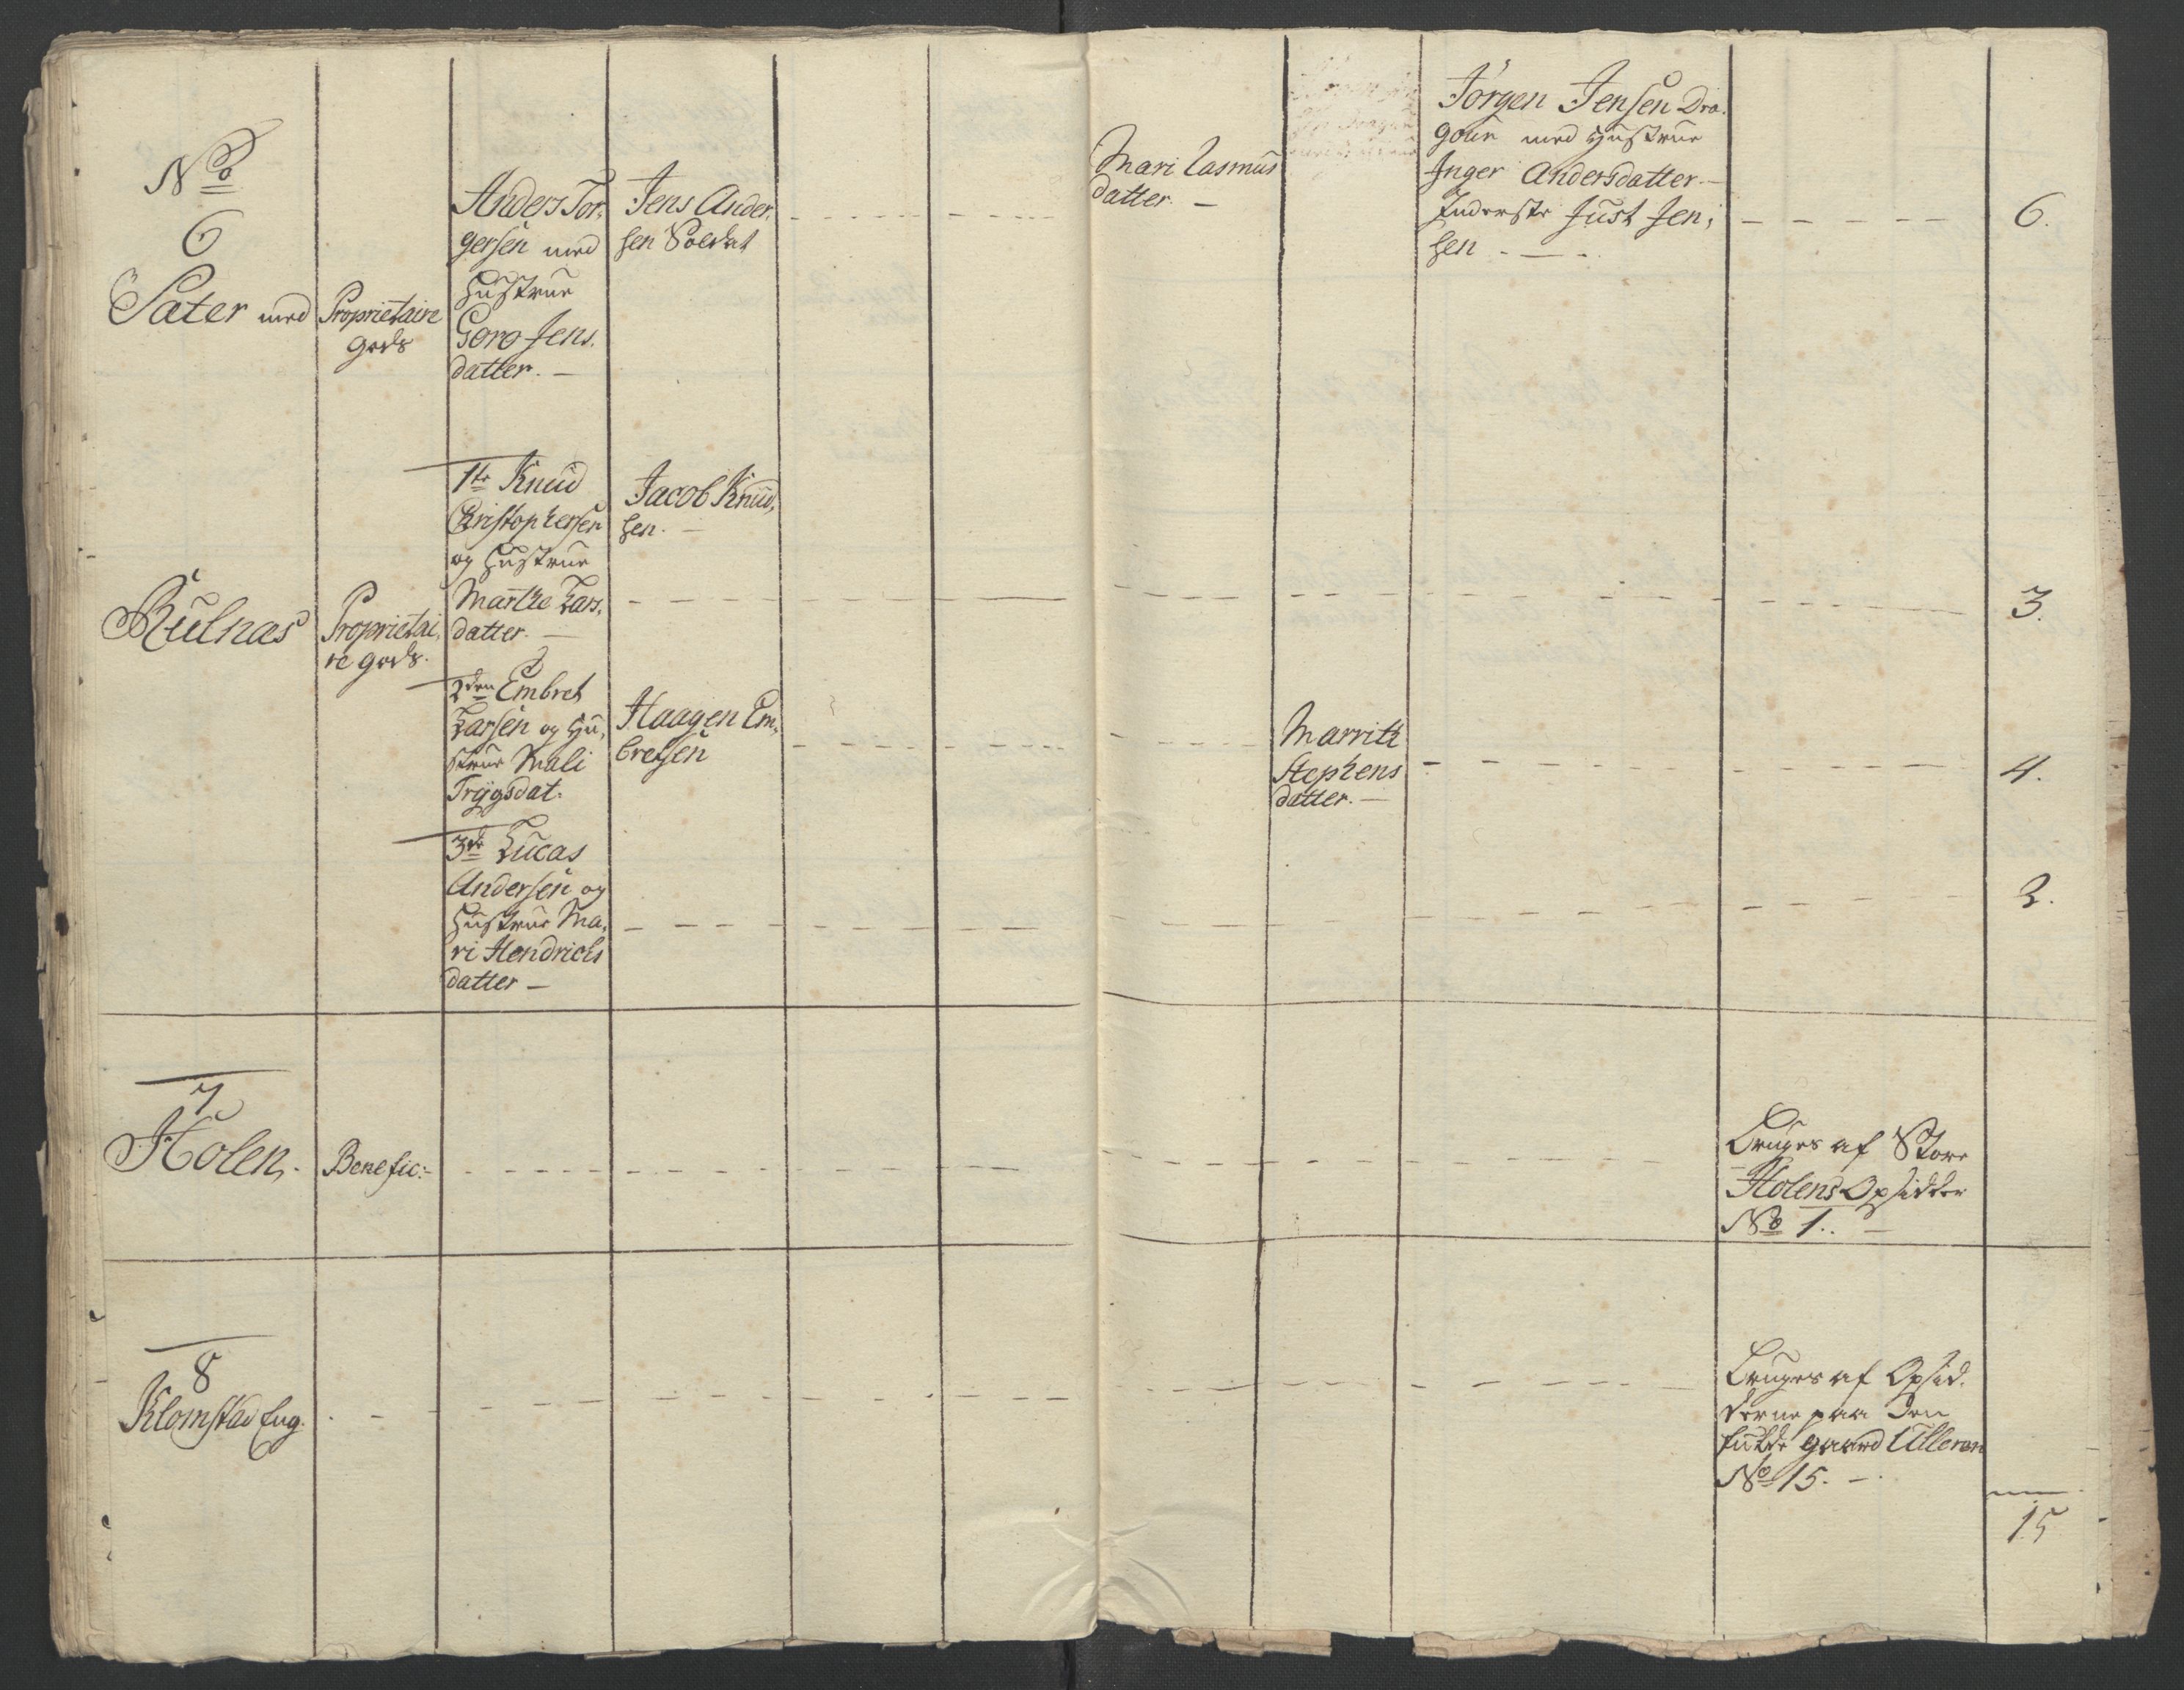 No
6
Sater med
Proprietaire
Gods
Anders Tor,
gersen med
Hustrue
Goro Jens,
datter. —
Jens Ander,
sen Soldat
Mari Rasmus
datter. —
Jörgen Jensen Dra,
goun med Hustrue
Inger Andersdatter. —
Inderste Just Jen,
sen
6.
Kulnas
Proprietai,
re Gods.
1te Knud
Christophersen
og Hustrue
Marthe Lars,
datter. —
Jacob Knud,
sen. —
3.
2den Embret
Larsen og Hu,
strue Mali
Trygsdat:
Haagen Em,
bretsen
Marrith
Stephens
datter. —
4.
3de Lucas
Andersen og
Hustrue Ma,
ri Hendrichs
datter —
2.
7
Holen.
Benefic:
Bruges af Store
Holens Opsidder
No 1. —
8
Klomstad Eng.
Bruges af Opsid,
derne paa den
fulde gaard Ulleren
No 15. —
15